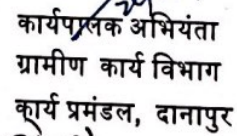 कार्यपालक अभियंता
ग्रामीण कार्य विभाग
कार्य प्रमंडल, दानापुर